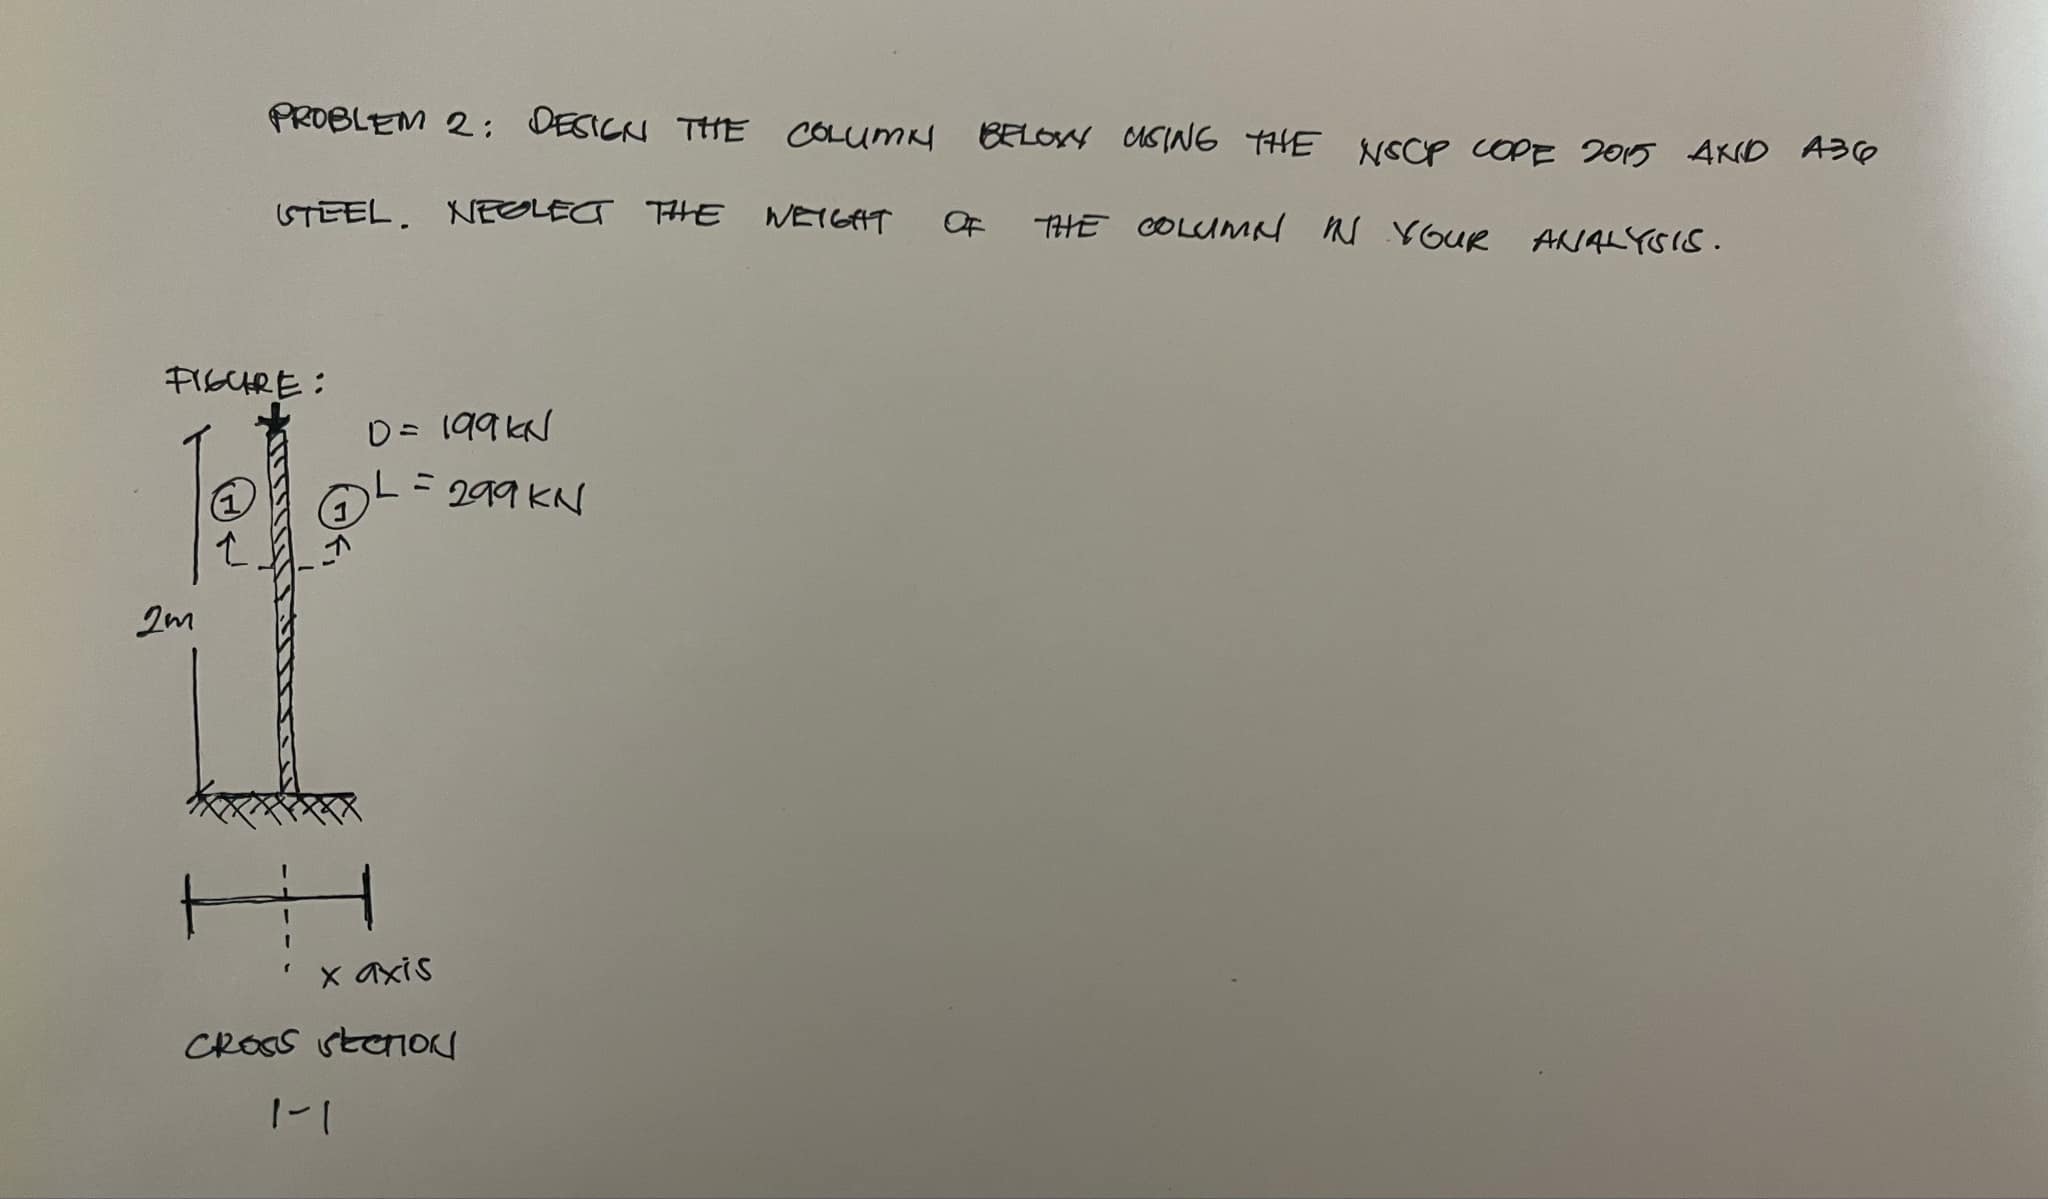 PROBLEM 2: DESIGN THE COLUMN BELOW USING THE NSCP CODE 2015 AND A36
STEEL. NEGLECT THE WEIGHT OF THE COLUMN IN YOUR ANALYSIS.
FIGURE:
D = 199 kN
L = 299 KN
1 1
2m
x axis
CROSS SECTION
1-1